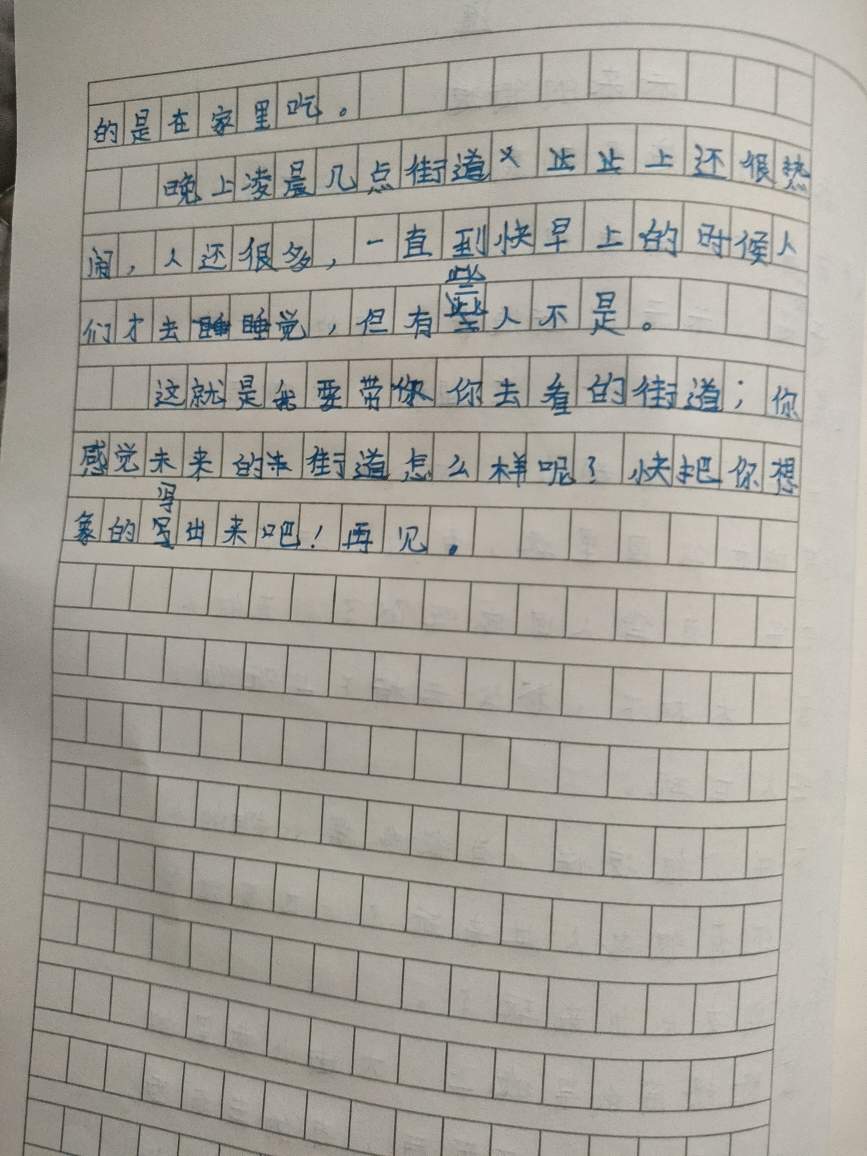 的是在家里吃。
晚上凌晨几点街道上还很热
闹，人还很多，一直到快早上的时候人
们才去睡觉，但有些人不是。
这就是我要带你去看的街道；你
感觉未来的街道怎么样呢？快把你想
象的写出来吧！再见。